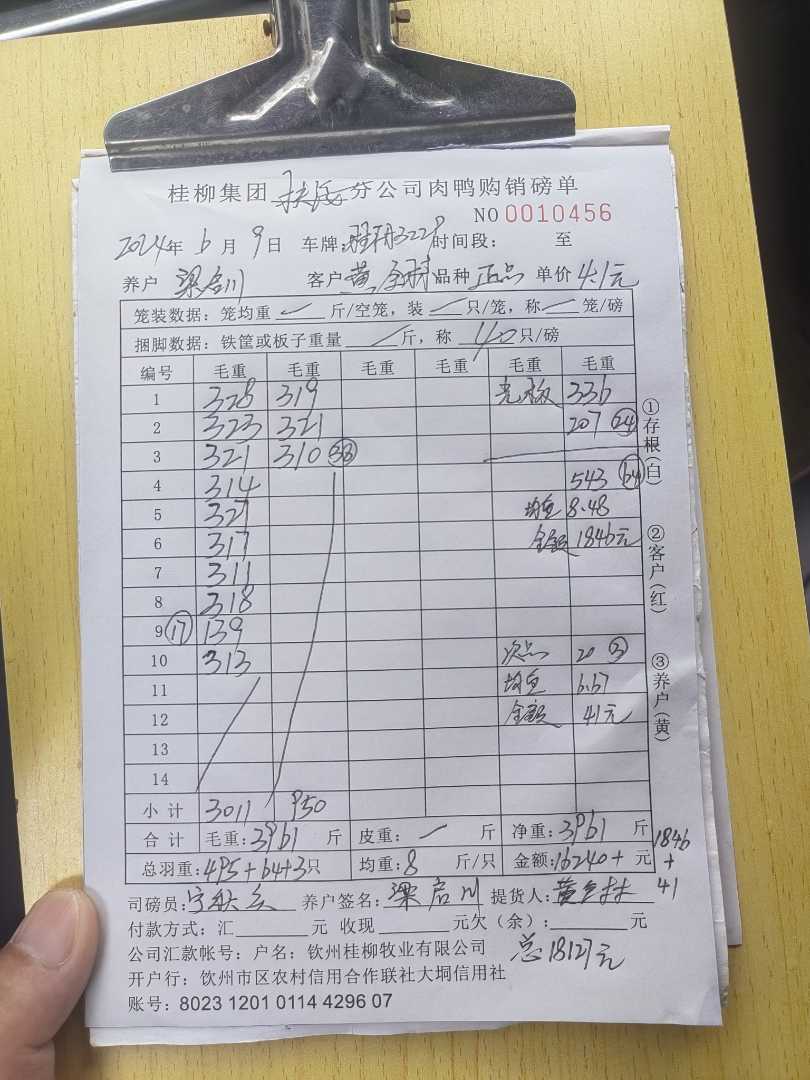 桂柳集团 扶隆 分公司肉鸭购销磅单
NO 0010456
2024年 6 月 9 日 车牌: 3229 时间段: 至
养户 梁启川 客户 黄 品种 正品 单价 4.1元
笼装数据: 笼均重 斤/空笼, 装 只/笼, 称 笼/磅
捆脚数据: 铁筐或板子重量 斤, 称 40 只/磅
编号 毛重 毛重 毛重 毛重 毛重 毛重
1 328 319 336
2 323 321 207 24
3 321 310 38
4 314 543 64
5 327 均重 8.48
6 317 金额 1846元
7 311
8 318
9 17 139
10 313 次品 20 3
11 均重 6.67
12 金额 41元
13
14
小计 3011 950
合计 毛重: 3961 斤 皮重: 一 斤 净重: 3961 斤
总羽重: 495+64+3只 均重: 8 斤/只 金额: 16240+ 元 1846
+
41
司磅员: 养户签名: 梁启川 提货人: 黄
付款方式: 汇 元 收现 元欠(余): 元
公司汇款帐号: 户名: 钦州桂柳牧业有限公司 总18127元
开户行: 钦州市区农村信用合作联社大垌信用社
账号: 8023 1201 0114 4296 07
①存根(白)
②客户(红)
③养户(黄)